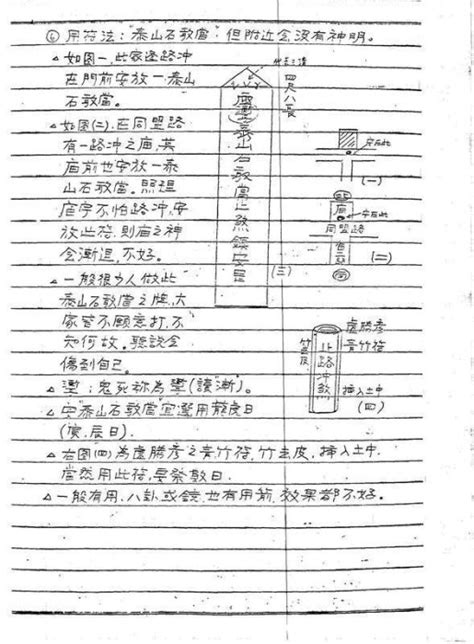 ⑥用符法:"泰山石敢當",但附近會沒有神明。
△如图一,此家逢路冲
在門前安放一泰山
石敢當。
△如图(二),在同盟路
有一路冲之庙,其
庙前也安放一泰
山石敢當。照理
庙宇不怕路冲,安
放此符,則庙之神
會漸退,不好。
△一般很少人做此
泰山石敢當之牌,大
家皆不願意打,不
知何故。聽説會
傷到自己。
△魙:鬼死称為魙(讀"漸")。
△安"泰山石敢當"宜選用龍虎日
(寅、辰日)。
△右图(四)為盧勝彥之青竹符,竹去皮,插入土中
當然用此符,要祭數日.
△一般有用八卦或鏡,也有用箭,效果都不好。
四尺八長
泰山石敢當止煞鎮安
(三)
安在此
(一)
庙
安在此
同盟路
(二)
盧勝彥
青竹符
止路冲煞
插入土中
(四)